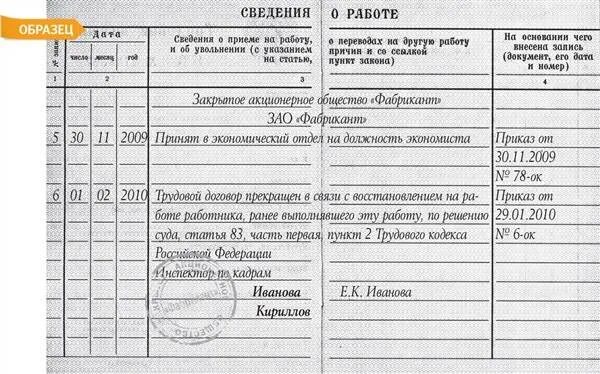 ОБРАЗЕЦ
СВЕДЕНИЯ О РАБОТЕ
Дата
число месяц год
Сведения о приеме на работу, о переводах на другую работу
и об увольнении (с указанием причин и со ссылкой
на статью, пункт закона)
На основании чего
внесена запись
(документ, его дата
и номер)
1 2 3 4
Закрытое акционерное общество «Фабрикант»
ЗАО «Фабрикант»
5 30 11 2009 Принят в экономический отдел на должность экономиста Приказ от
30.11.2009
№ 78-ок
6 01 02 2010 Трудовой договор прекращен в связи с восстановлением на ра- Приказ от
боте работника, ранее выполнявшего эту работу, по решению 29.01.2010
суда, статья 83, часть первая, пункт 2 Трудового кодекса № 6-ок
Российской Федерации
Инспектор по кадрам
Иванова Е.К. Иванова
Кириллов